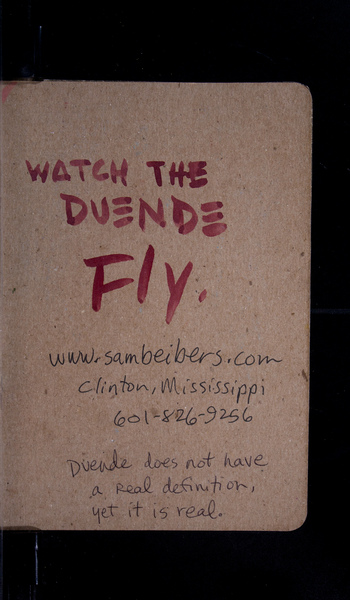 WATCH THE
DUENDE
Fly.
www.sambeibers.com
Clinton, Mississippi
601-826-9256
Duende does not have
a real definition,
yet it is real.